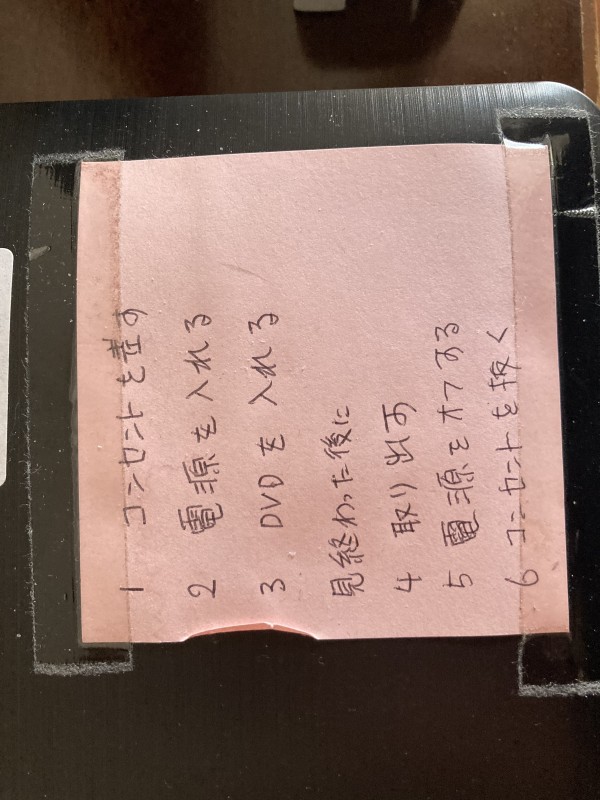 1 コンセントを差す
2 電源を入れる
3 DVDを入れる
見終わった後に
4 取り出す
5 電源をオフする
6 コンセントを抜く